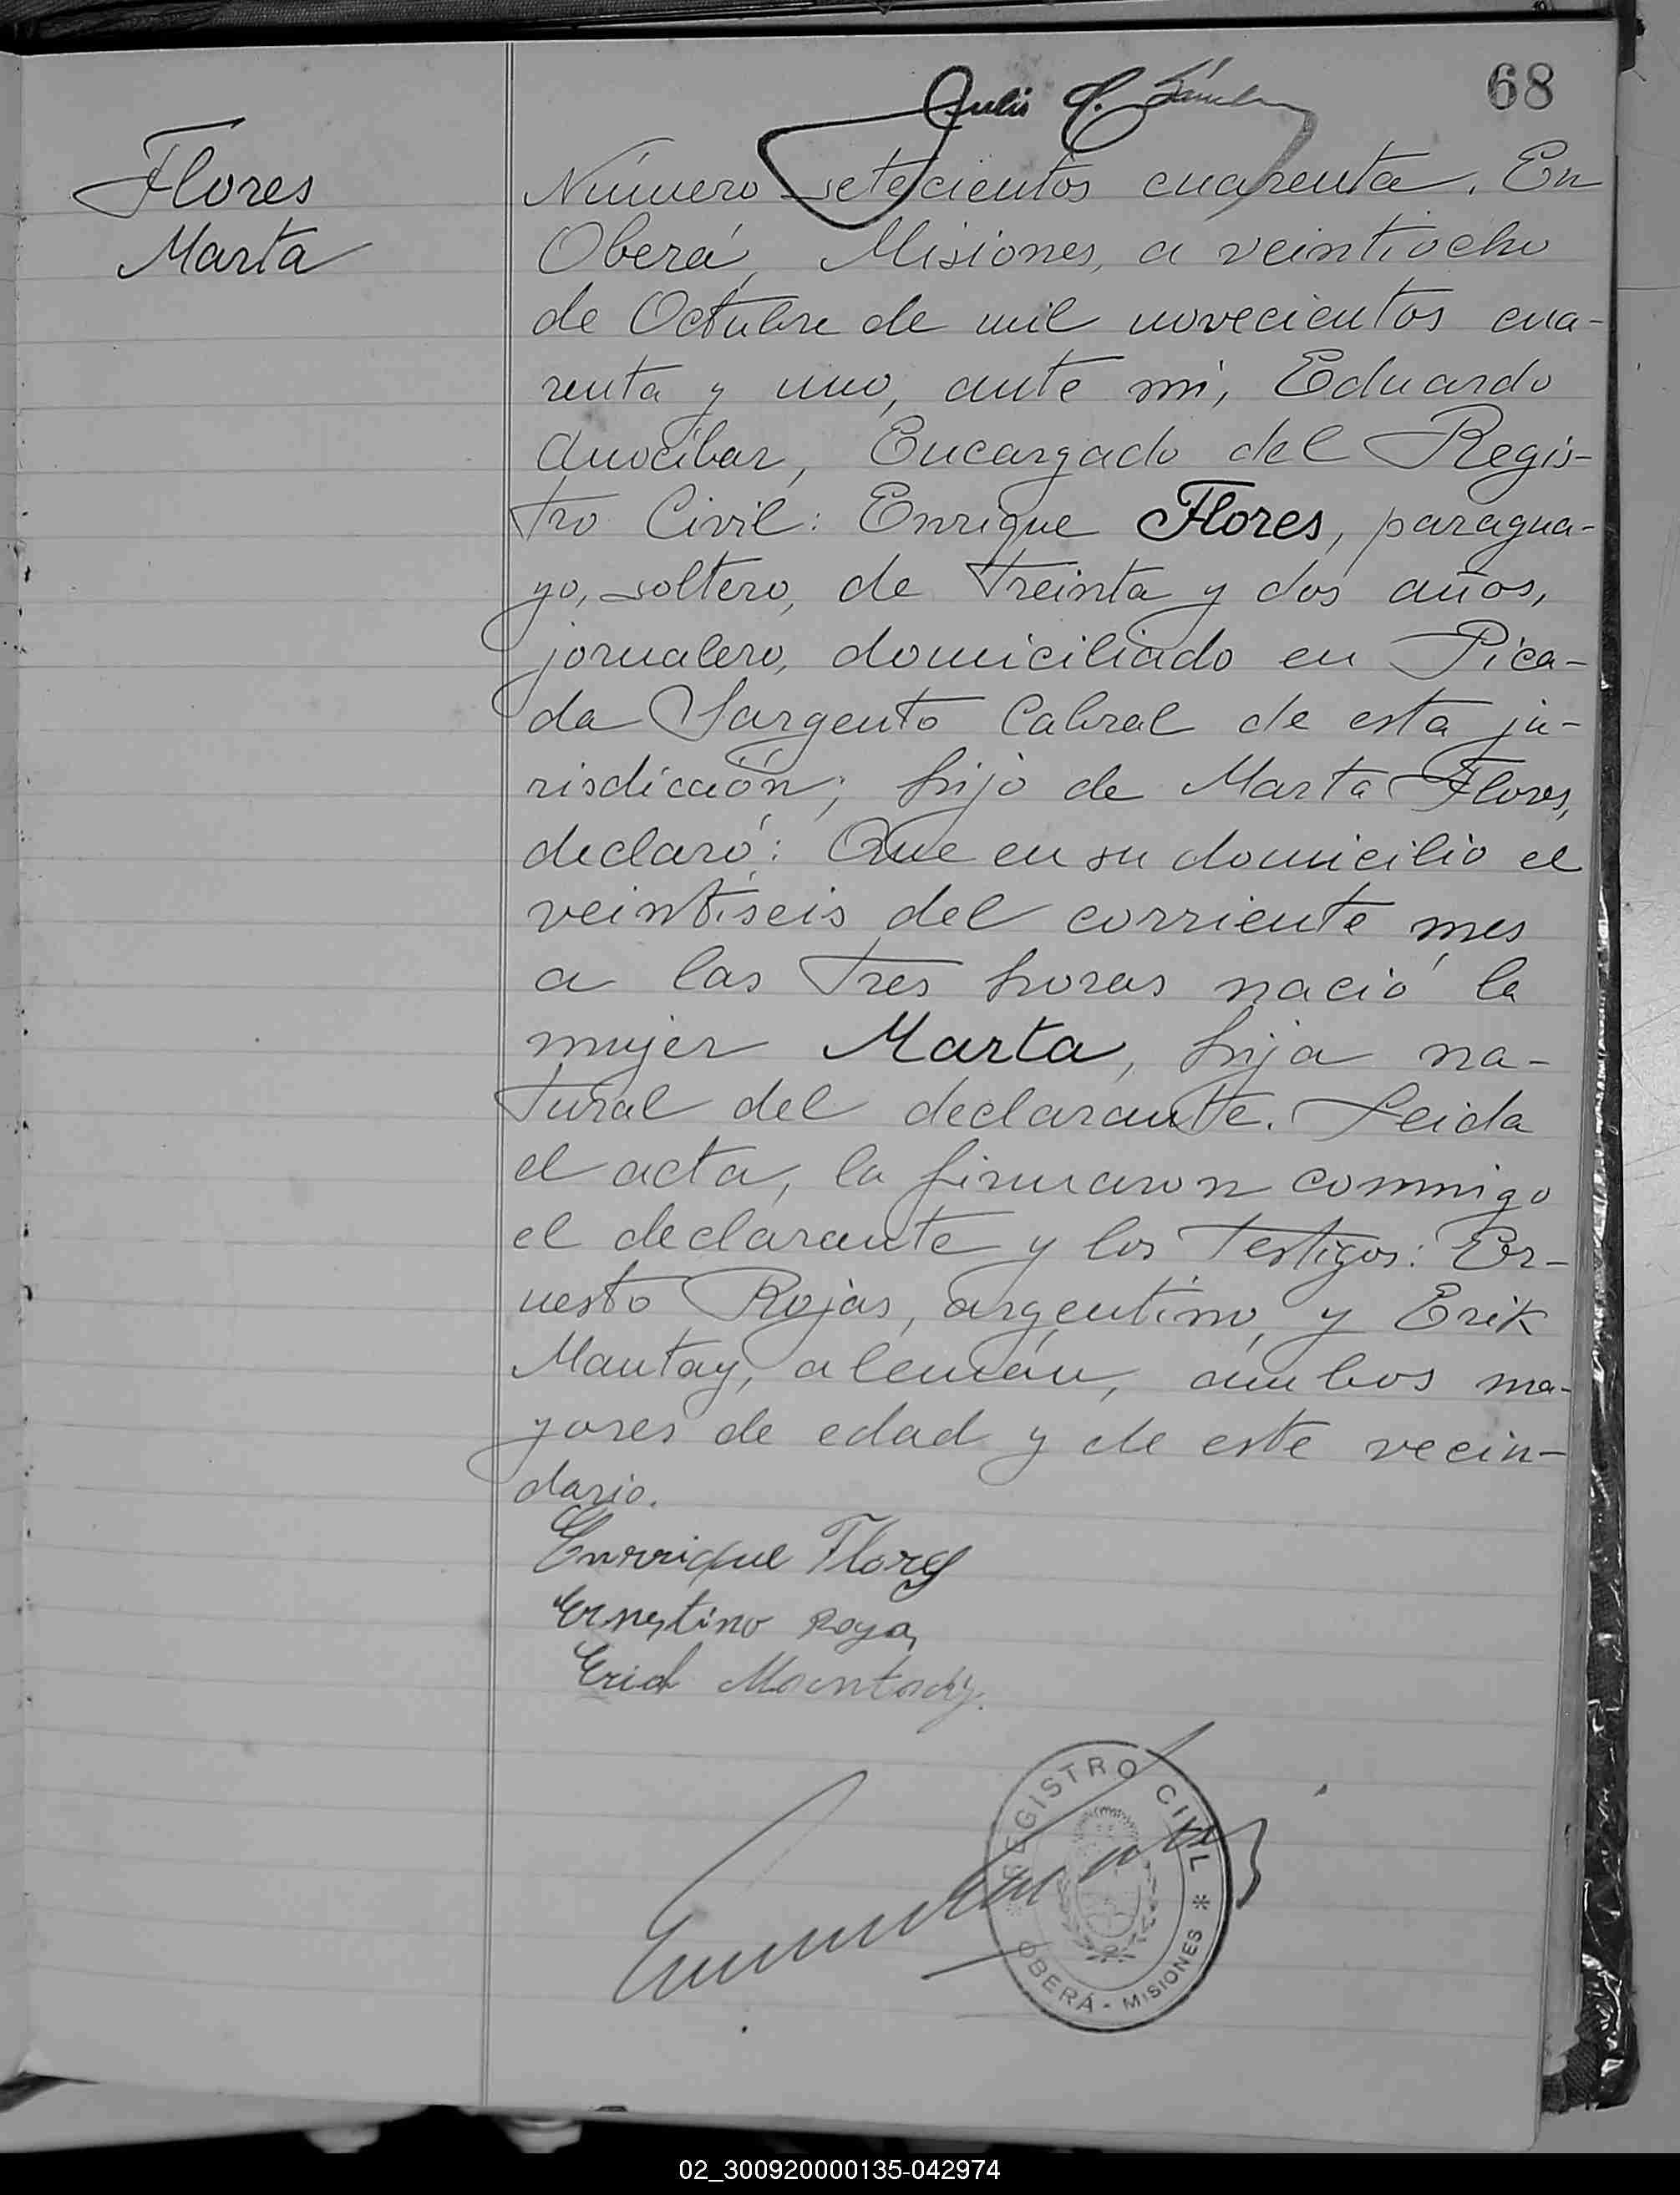 68
Julio A. Sánchez
Flores
Marta
Número setecientos cuarenta. En
Oberá, Misiones, a veintiocho
de Octubre de mil novecientos cua-
renta y uno, ante mi, Eduardo
Anocíbar, Encargado del Regis-
tro Civil: Enrique Flores, paragua-
yo, soltero, de treinta y dos años,
jornalero, domiciliado en Pica-
da Sargento Cabral de esta ju-
risdicción; hijo de Marta Flores,
declaró: Que en su domicilio el
veintiseis del corriente mes
a las tres horas nació la
mujer Marta, hija na-
tural del declarante. Leida
el acta, la firmaron conmigo
el declarante y los testigos: Er-
nesto Rojas, argentino, y Erik
Mantay, alemán, ambos ma-
yores de edad y de este vecin-
dario.
Enrrique Flores
Ernestino Roya,
Erich
REGISTRO CIVIL
OBERÁ - MISIONES
02_300920000135-042974